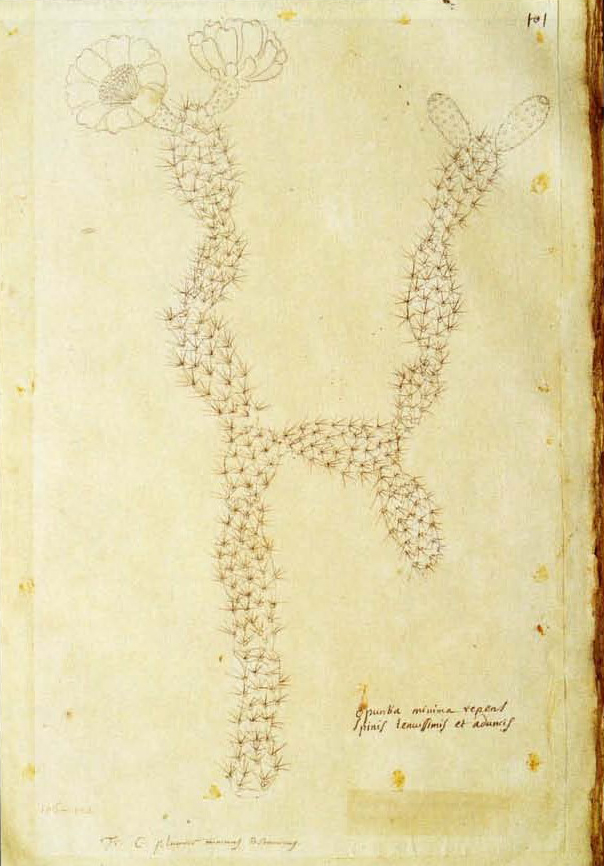 101
opuntia minima repens
spinis tenuissimis et aduncis
Fr. C. plumier minimus